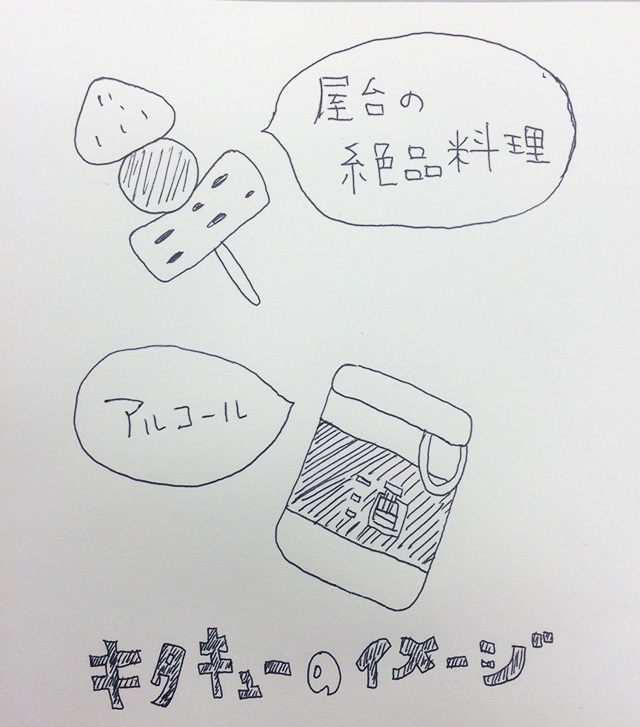 屋台の
絶品料理
アルコール
キタキューのイメージ